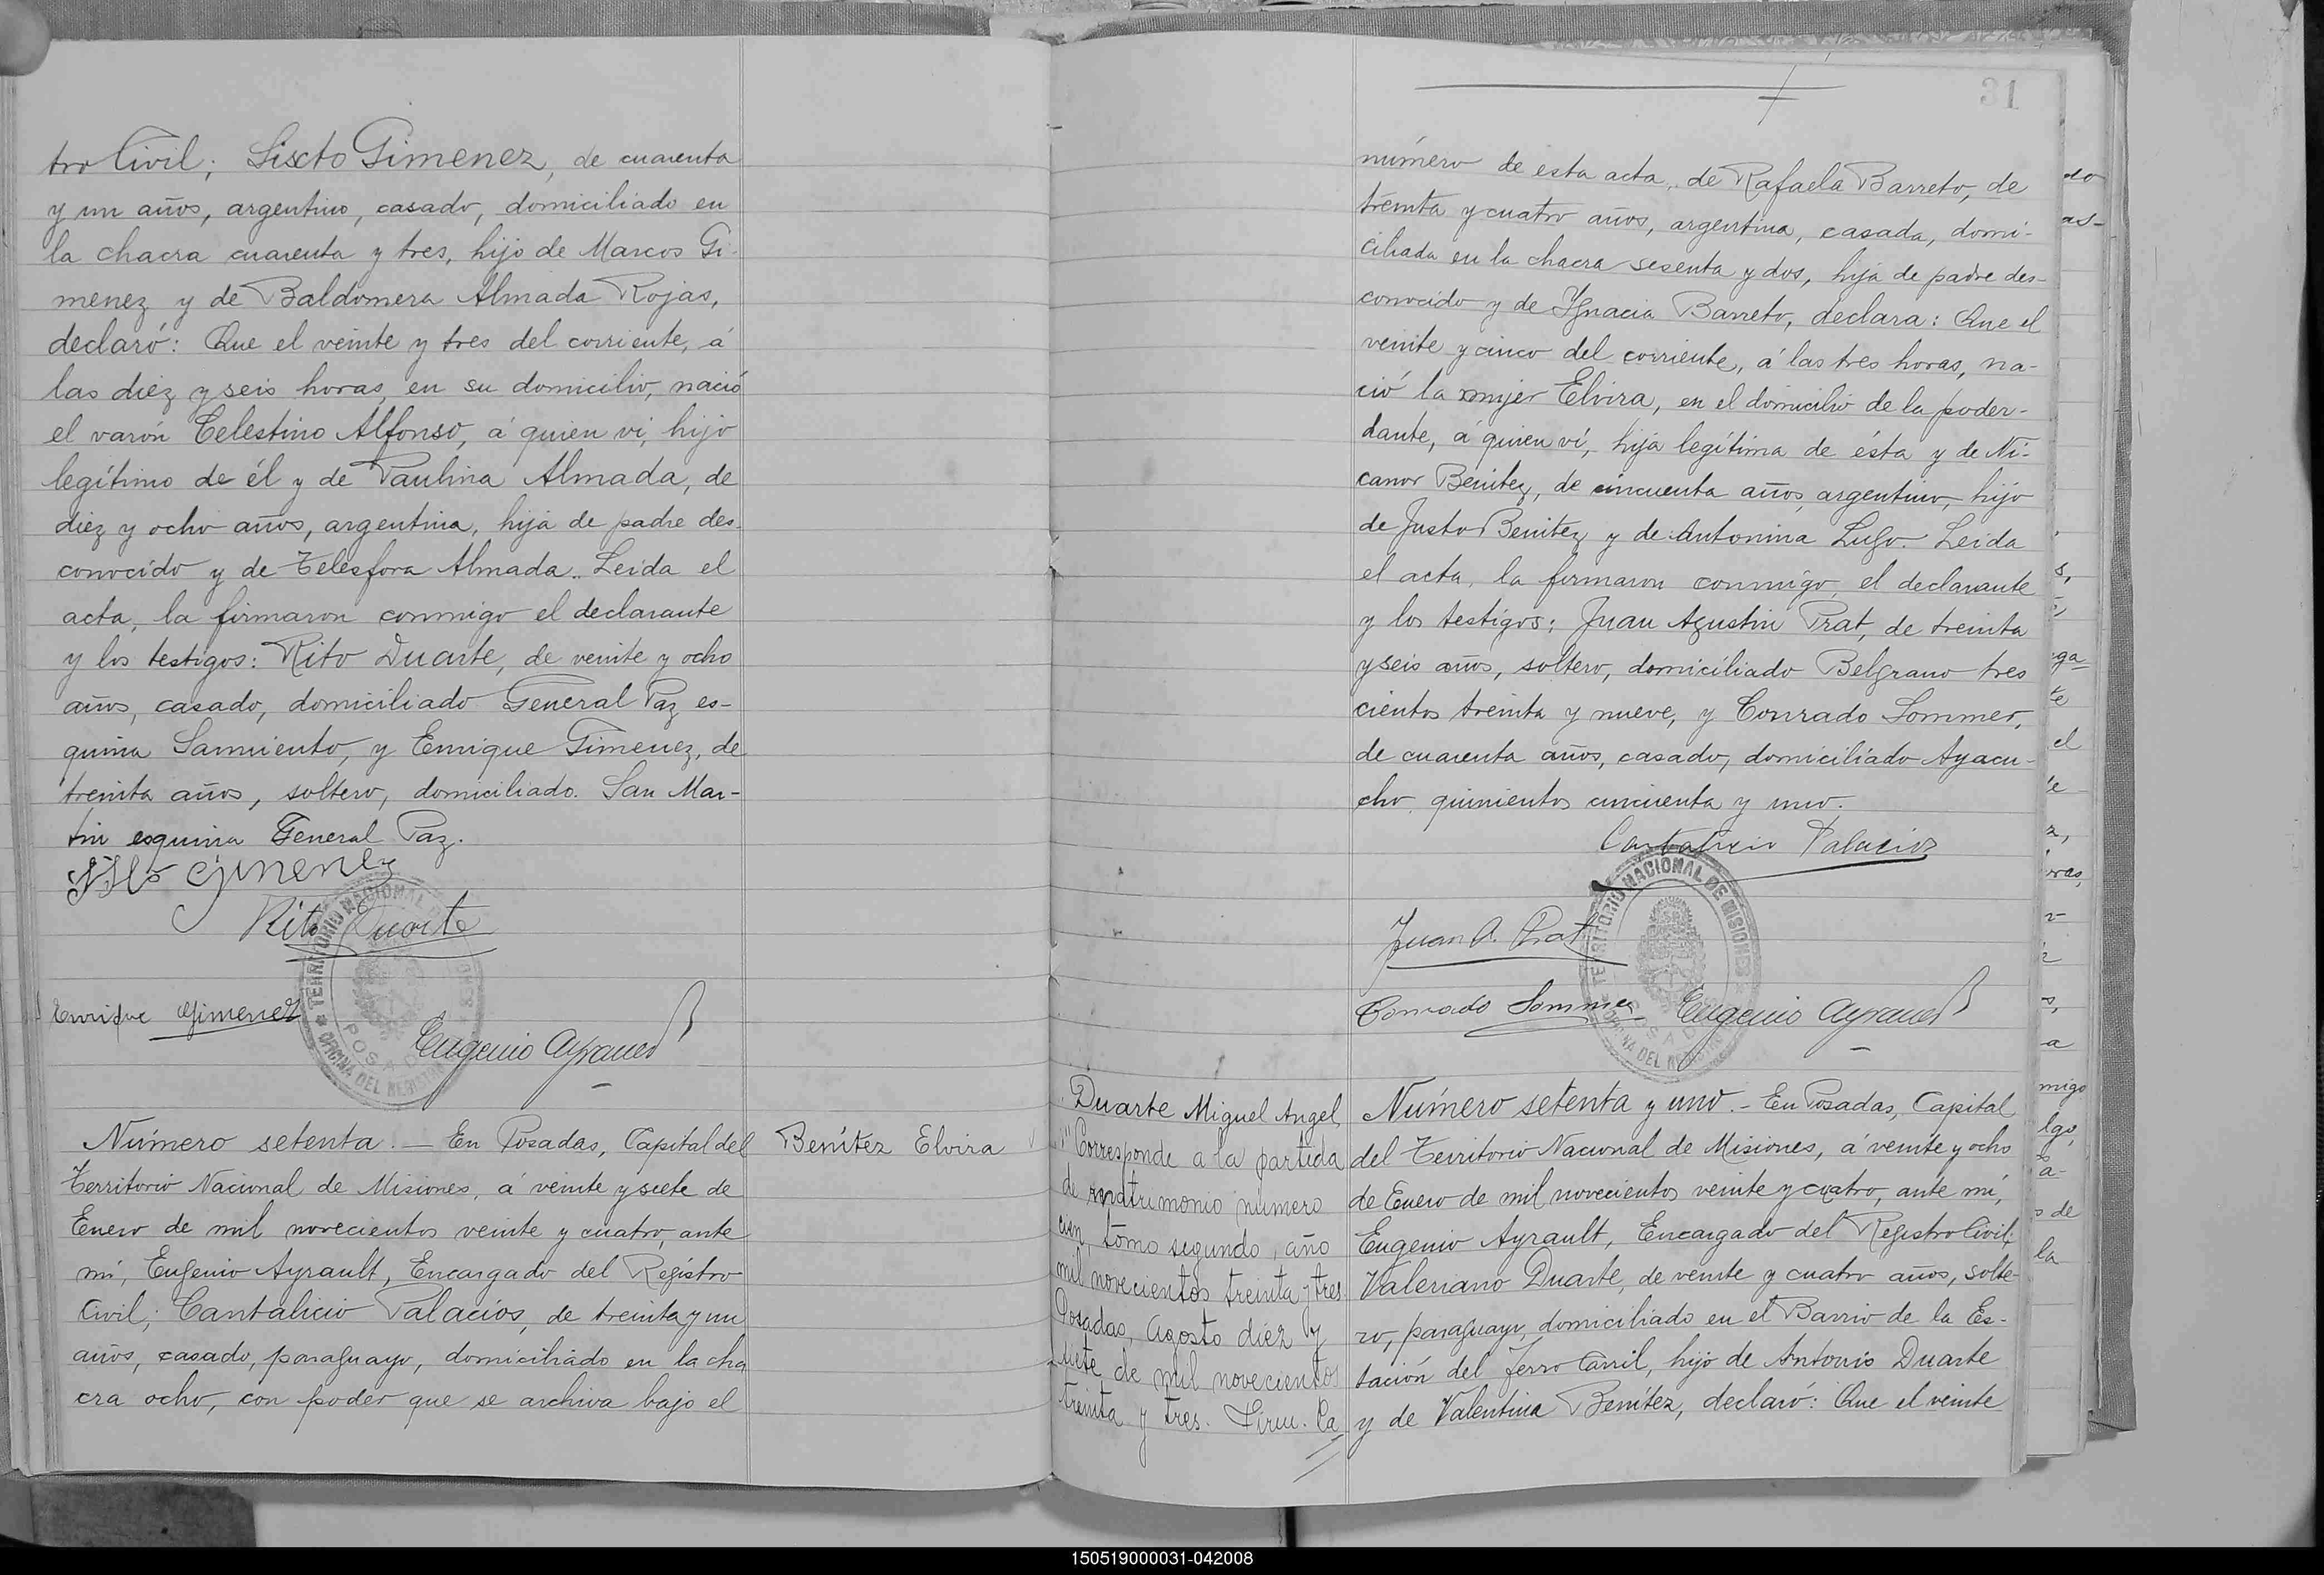 tro Civil; Sixto Gimenez, de cuarenta
y un años, argentino, casado, domiciliado en
la chacra cuarenta y tres, hijo de Marcos Gi-
menez y de Baldomera Almada Rojas,
declaró: Que el veinte y tres del corriente, á
las diez y seis horas, en su domicilio, nació
el varón Celestino Alfonso, á quien ví, hijo
legítimo de él y de Paulina Almada, de
diez y ocho años, argentina, hija de padre des-
conocido y de Telésfora Almada. Leida el
acta, la firmaron conmigo el declarante
y los testigos: Rito Duarte, de veinte y ocho
años, casado, domiciliado General Paz es-
quina Sarmiento, y Enrique Gimenez, de
treinta años, soltero, domiciliado San Mar-
tin esquina General Paz.
Gimenez
Rito Duarte
Enrique Gimenez
Eugenio Ayrault
TERRITORIO NACIONAL
OFICINA DEL REGISTRO
POSADAS
Número setenta.- En Posadas, Capital del
Territorio Nacional de Misiones, á veinte y siete de
Enero de mil novecientos veinte y cuatro, ante
mí, Eugenio Ayrault, Encargado del Registro
Civil; Cantalicio Palacios, de treinta y un
años, casado, paraguayo, domiciliado en la cha
cra ocho, con poder que se archiva bajo el
Benítez Elvira
31
número de esta acta, de Rafaela Barreto, de
treinta y cuatro años, argentina, casada, domi-
ciliada en la chacra sesenta y dos, hija de padre des-
conocido y de Ygnacia Barreto, declara: Que el
veinte y cinco del corriente, á las tres horas, na-
ció la mujer Elvira, en el domicilio de la poder-
dante, á quien ví, hija legítima de ésta y de Ni-
canor Benitez, de cincuenta años, argentino, hijo
de Justo Benitez y de Antonina Lugo. Leida
el acta, la firmaron conmigo, el declarante
y los testigos: Juan Agustin Prat, de treinta
y seis años, soltero, domiciliado Belgrano tres
cientos treinta y nueve, y Conrado Sommer,
de cuarenta años, casado, domiciliado Ayacu-
cho quinientos cincuenta y uno.
Cantalicio Palacios
Juan A. Prat
Conrado Sommer
Eugenio Ayrault
TERRITORIO NACIONAL DE MISIONES
OFICINA DEL REGISTRO
POSADAS
Duarte Miguel Angel
"Corresponde a la partida
de matrimonio número
cien, tomo segundo, año
mil novecientos treinta y tres
Posadas, Agosto diez y
siete de mil novecientos
treinta y tres. Firm. Ca
Número setenta y uno.- En Posadas, Capital
del Territorio Nacional de Misiones, á veinte y ocho
de Enero de mil novecientos veinte y cuatro, ante mí,
Eugenio Ayrault, Encargado del Registro Civil;
Valeriano Duarte, de veinte y cuatro años, solte-
ro, paraguayo, domiciliado en el Barrio de la Es-
tación del Ferro Carril, hijo de Antonio Duarte
y de Valentina Benítez, declaró: Que el veinte
150519000031-042008